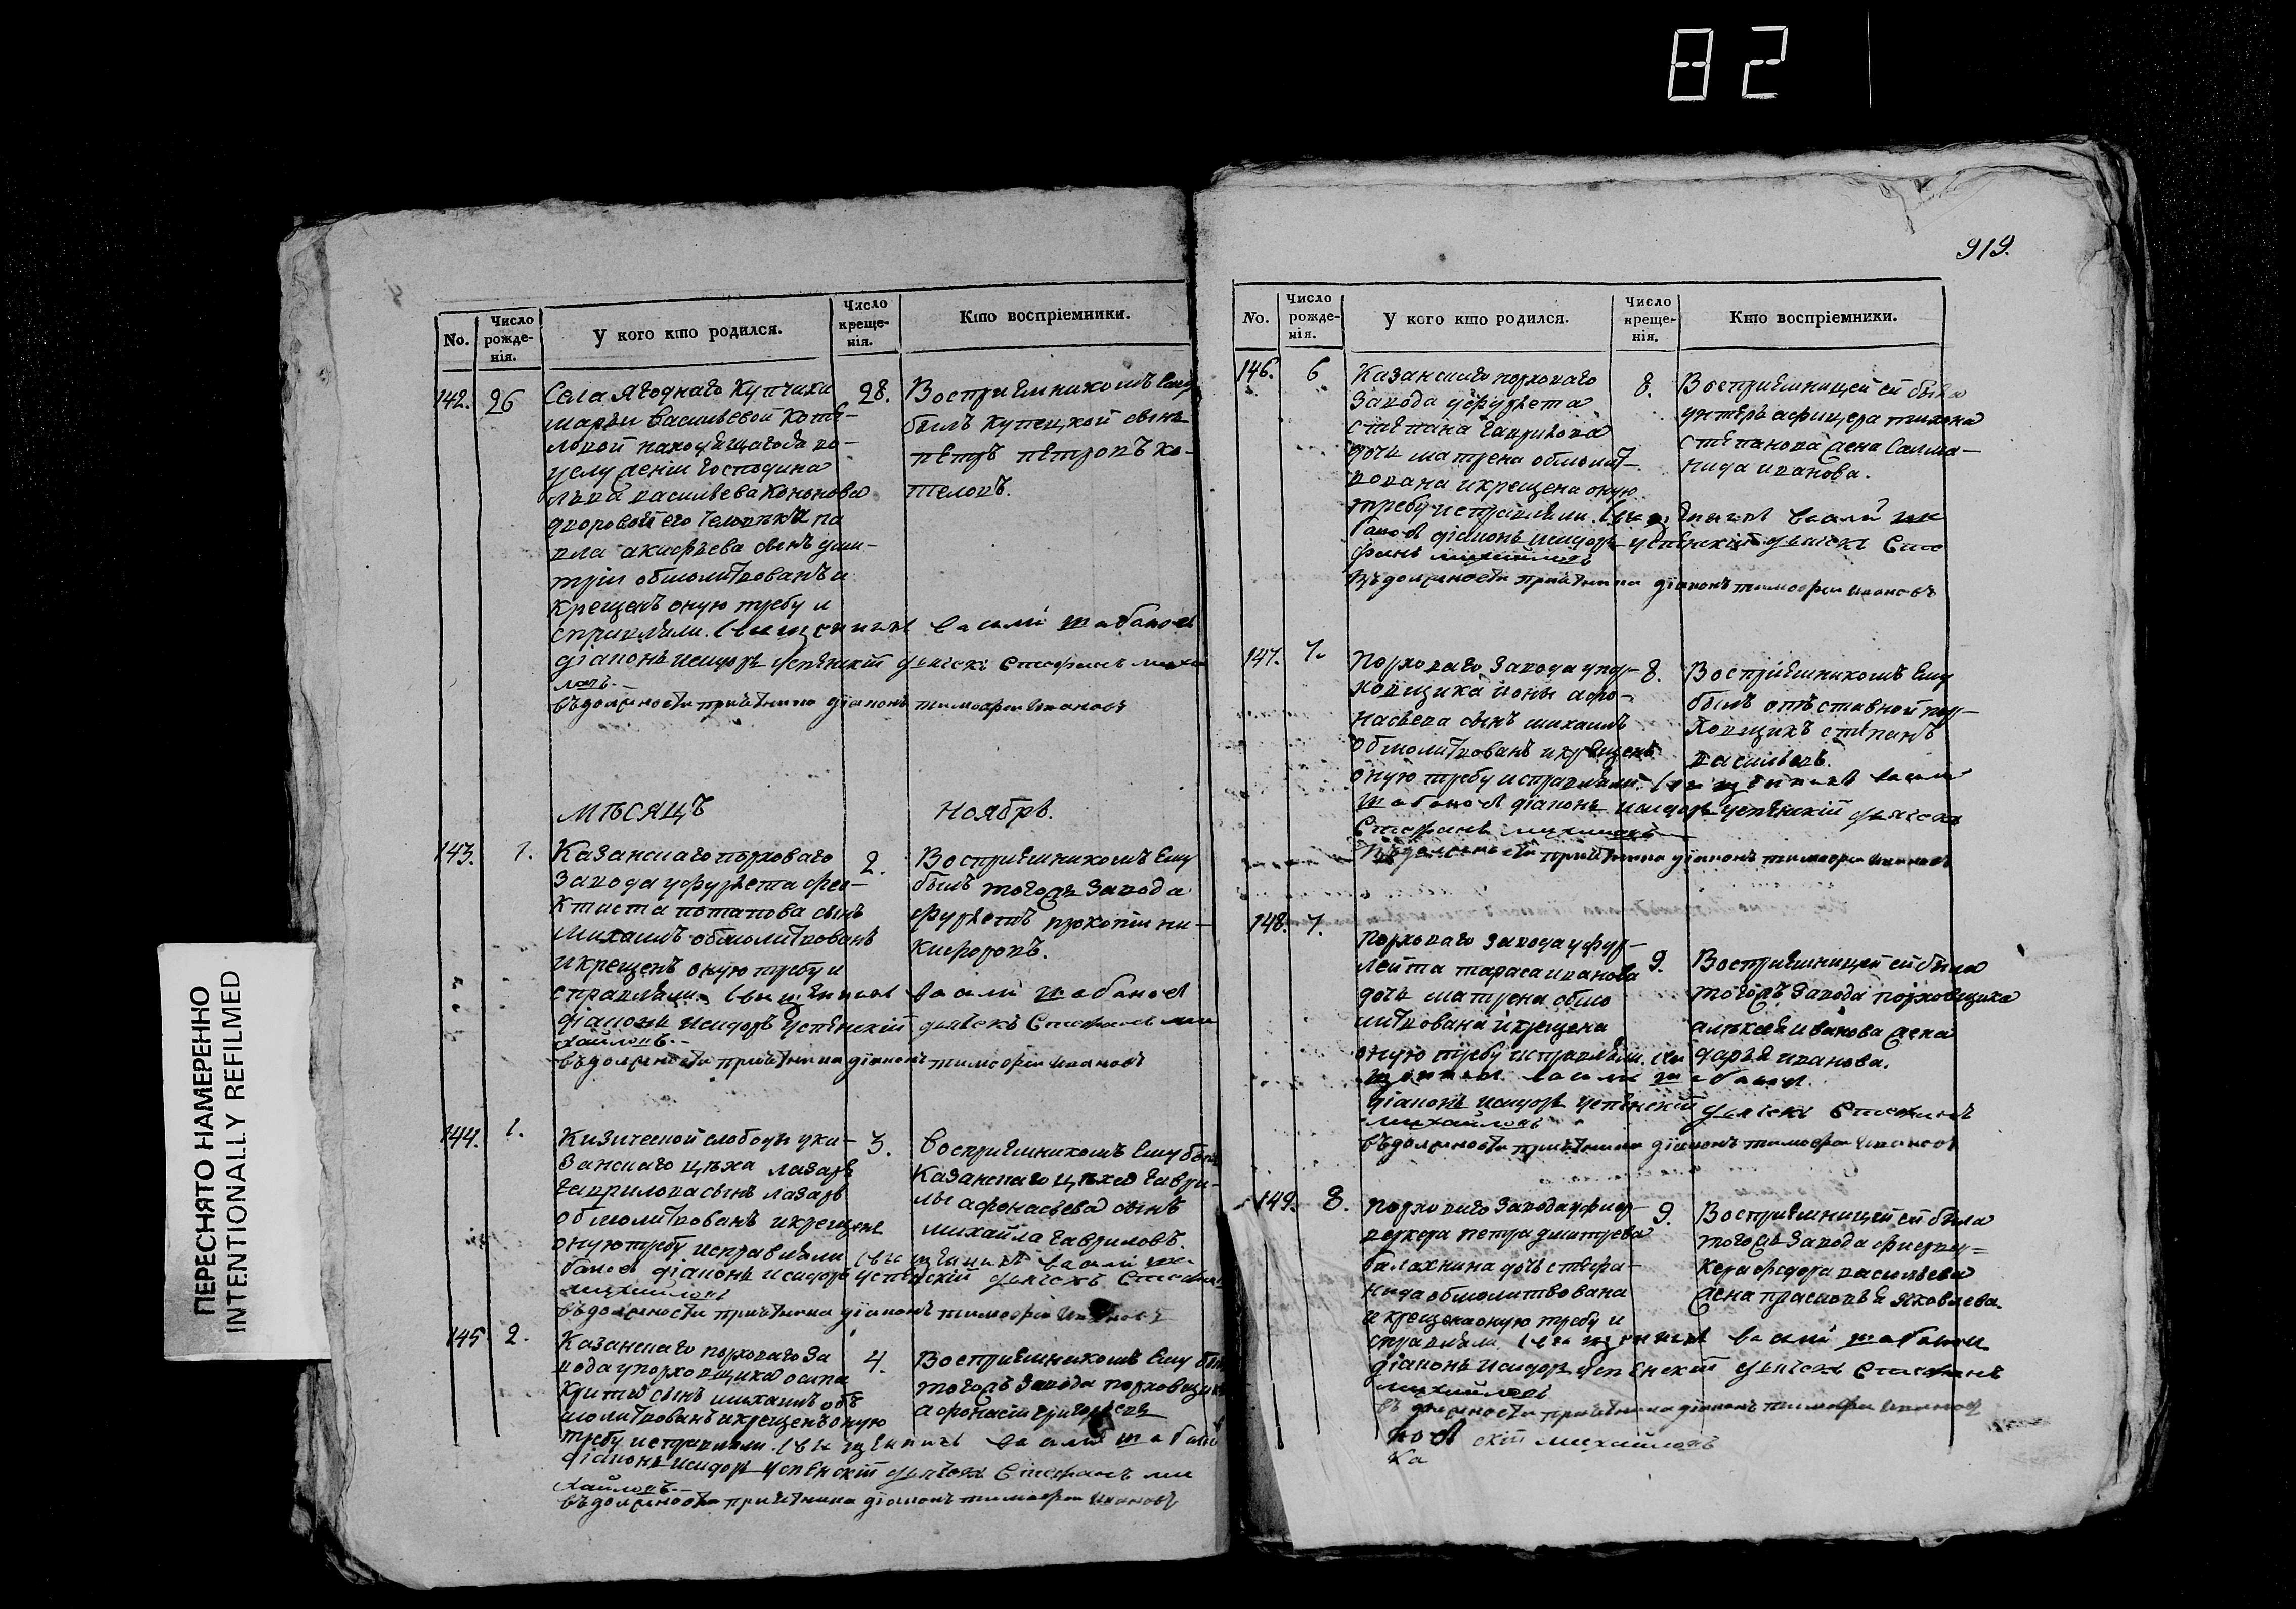 82
ПЕРЕСНЯТО НАМЕРЕННО
INTENTIONALLY REFILMED
No.
Число рожде-нія.
У кого кто родился.
Число креще-нія.
Кто воспріемники.
142. 26
Села Ягоднаго Купчихи
Марьи Васильевой Коте-
ловой находящагося во
услуженіи Господина
Льва Васильева Кононова
двороваго его человѣка па
вла акифьева сынъ дми-
трій обмолитвованъ и
крещенъ оную требу и
справляли. священникъ василі шабанов
діаконъ исидоръ успѣнскій дьячекъ Стефанъ михай
ловъ.
въ должности причетника діаконъ тимофей ивановъ
28.
Воспріемникомъ Ему
былъ Купецкой сынъ
петръ петровъ ко-
теловъ.
МѢСЯЦЪ Ноябрь.
143. 1.
Казанскаго порховаго
завода у фурлета фео-
ктиста потапова сынъ
Михаилъ обмолитвованъ
и крещенъ оную требу и
справляли. священникъ василі шабанов
діаконъ исидоръ успѣнскій дьячекъ Стефанъ ми
хайловъ.
въ должности причетника діаконъ тимофей ивановъ
2.
Воспріемникомъ Ему
былъ тогожъ завода
фурлетъ прокопій ни-
кифоровъ.
144. 1.
Кизической слободы у ка-
занскаго цѣха лазаря
гаврилова сынъ лазарь
обмолитвованъ и крещенъ
оную требу исправляли священникъ василі ша
банов діаконъ исидоръ успѣнскій дьячекъ Стефанъ
михайловъ
въ должности причетника діаконъ тимофей ивановъ
3.
Воспріемникомъ Ему былъ
Казанскаго цѣха гаври-
лы афонасьева сынъ
михайла гавриловъ.
145 2.
Казанскаго порховаго за
вода у порховщика осипа
сынъ михаилъ об
молитвованъ и крещенъ оную
требу исправляли. священникъ василі шабанов
діаконъ исидоръ успѣнскій дьячекъ Стефанъ ми
хайловъ.
въ должности причетника діаконъ тимофей ивановъ
4.
Воспріемникомъ Ему былъ
тогожъ завода порховщикъ
афонасій григорьевъ
919.
No.
Число рожде-нія.
У кого кто родился.
Число креще-нія.
Кто воспріемники.
146. 6
Казанскаго порховаго
завода у фурлета
степана гаврилова
дочь матрена обмолит-
вована и крещена оную
требу исправляли. священникъ василі ша
банов діаконъ исидоръ успѣнскій дьячекъ Сте
фанъ михайловъ
въ должности причетника діаконъ тимофей ивановъ
8.
Воспріемницей ей была
унтеръ афицера тихона
степанова жена Салма-
нида иванова.
147. 7.
порховаго завода у пор-
ховщика ионы афо-
насьева сынъ михаилъ
обмолитвованъ и крещенъ
оную требу исправляли. священникъ васили
шабанов діаконъ исидоръ успѣнскій дьячекъ
Стефанъ михайловъ
въ должности причетника діаконъ тимофей ивановъ
8.
Воспріемникомъ Ему
былъ отставной пор-
ховщикъ степанъ
васильевъ.
148. 7.
порховаго завода у фур-
лейта тараса иванова
дочь матрена обмо
литвована и крещена
оную требу исправляли. свя
щенникъ василі шабанов.
діаконъ исидоръ успѣнскій дьячекъ Стефанъ
михайловъ
въ должности причетника діаконъ тимофей ивановъ
9.
Воспріемницей ей была
тогожъ завода порховщика
алексея иванова жена
дарья иванова.
149. 8.
порховаго завода у фиер-
веркера петра дмитрева
балахнина дочь стефа-
нида обмолитвована
и крещена оную требу и
справляли. священникъ василі шабанов
діаконъ исидоръ успѣнскій дьячекъ Стефанъ
михайловъ
въ должности причетника діаконъ тимофей ивановъ
9.
Воспріемницей ей была
тогожъ завода фиервер=
кера федора васильева
жена прасковья яковлева.
скій михайловъ
ка